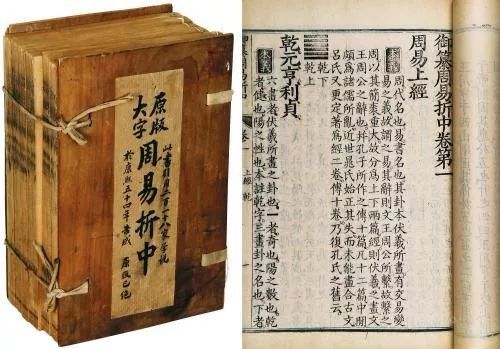 原版
大字
周易折中
此書
百一十八家學說
於康熙五十四年書成 原版已絕
御纂周易折中卷第一
周易上經
周代名也易書名也其卦本伏羲所畫有交易變
易之義故謂之易其辭則文王周公所繫故繫之
周以其簡袠重大故分為上下兩篇經則伏羲之畫文
王周公之辭也并孔子所作之傳十篇凡十二篇中間
頗為諸儒所亂近世晁氏始正其失而未能盡合古文
呂氏又更定著為經二卷傳十卷乃復孔氏之舊云
乾下
乾上
乾元亨利貞
六畫者伏羲所畫之卦也一者奇也陽之數也乾
者健也陽之性也本註乾字三畫卦之名也下者
卷一 上經 乾